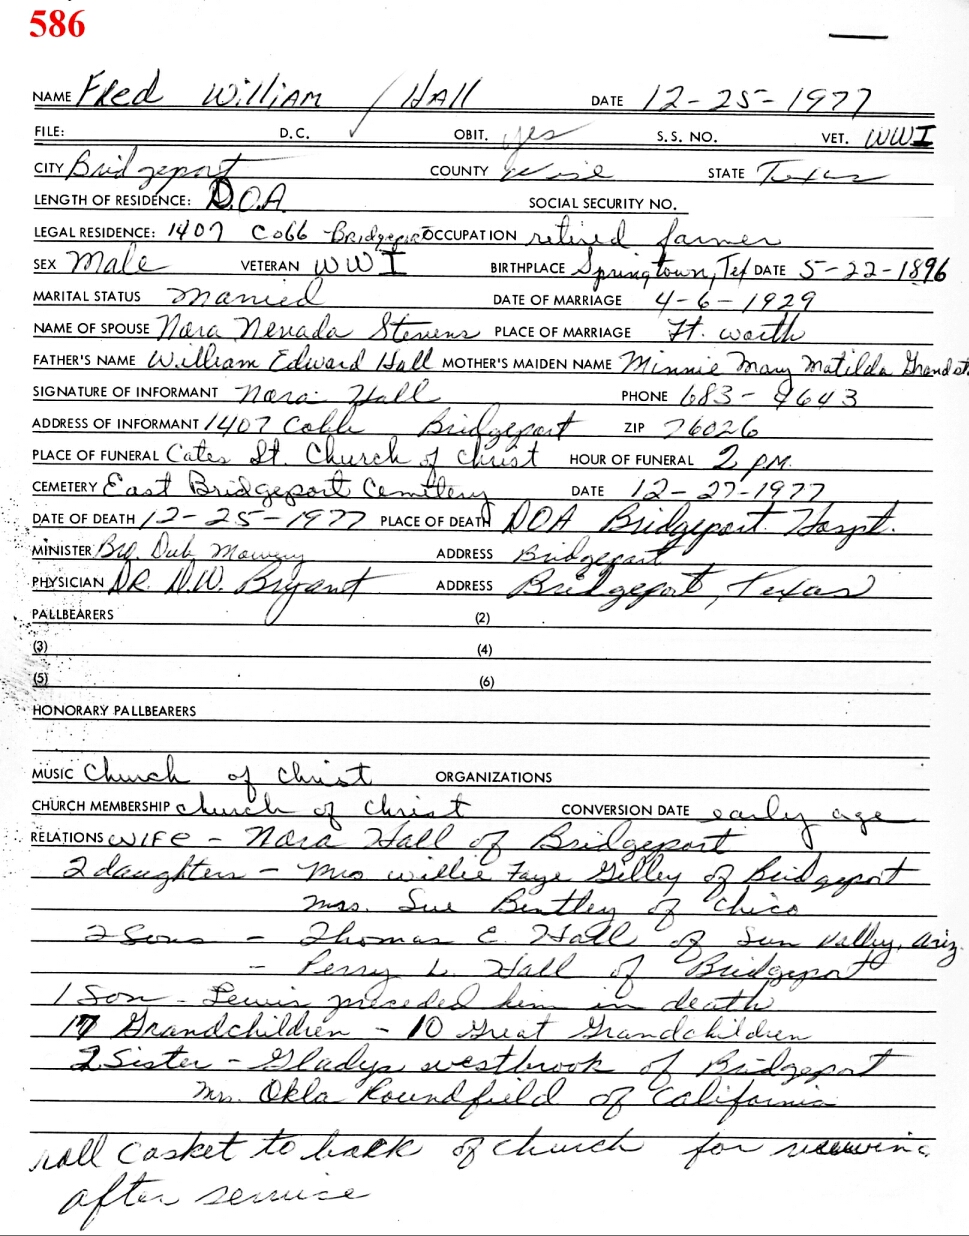 586
NAME Fred William / Hall DATE 12-25-1977
FILE: D.C. ✓ OBIT. yes S.S. NO. VET. WWI
CITY Bridgeport COUNTY Wise STATE Texas
LENGTH OF RESIDENCE: D.O.A. SOCIAL SECURITY NO.
LEGAL RESIDENCE: 1407 Cobb Bridgeport OCCUPATION retired farmer
SEX Male VETERAN WWI BIRTHPLACE Springtown, Tex DATE 5-22-1896
MARITAL STATUS Married DATE OF MARRIAGE 4-6-1929
NAME OF SPOUSE Nora Nevada Stevens PLACE OF MARRIAGE Ft. Worth
FATHER'S NAME William Edward Hall MOTHER'S MAIDEN NAME Minnie Mary Matilda
SIGNATURE OF INFORMANT Nora Hall PHONE 683-
ADDRESS OF INFORMANT 1407 Cobb Bridgeport ZIP 76026
PLACE OF FUNERAL Cates St. Church of Christ HOUR OF FUNERAL 2 PM.
CEMETERY East Bridgeport Cemetery DATE 12-27-1977
DATE OF DEATH 12-25-1977 PLACE OF DEATH DOA Bridgeport Hospt.
MINISTER Bro. Dub Mowery ADDRESS Bridgeport
PHYSICIAN DR. D.W. Bryant ADDRESS Bridgeport, Texas
PALLBEARERS (2)
(3) (4)
(5) (6)
HONORARY PALLBEARERS
MUSIC Church of Christ ORGANIZATIONS
CHURCH MEMBERSHIP church of Christ CONVERSION DATE early age
RELATIONS WIFE - Nora Hall of Bridgeport
2 daughters - Mrs Willie Faye Gilley of Bridgeport
Mrs. Sue Bentley of Chico
2 Sons - Thomas E. Hall of Sun Valley, Ariz.
- Perry L. Hall of Bridgeport
1 Son - Lewis preceded him in death
17 Grandchildren - 10 Great Grandchildren
2 Sister - Gladys Westbrook of Bridgeport
Mrs. Okla Roundfield of California
roll casket to back of church for viewing
after service